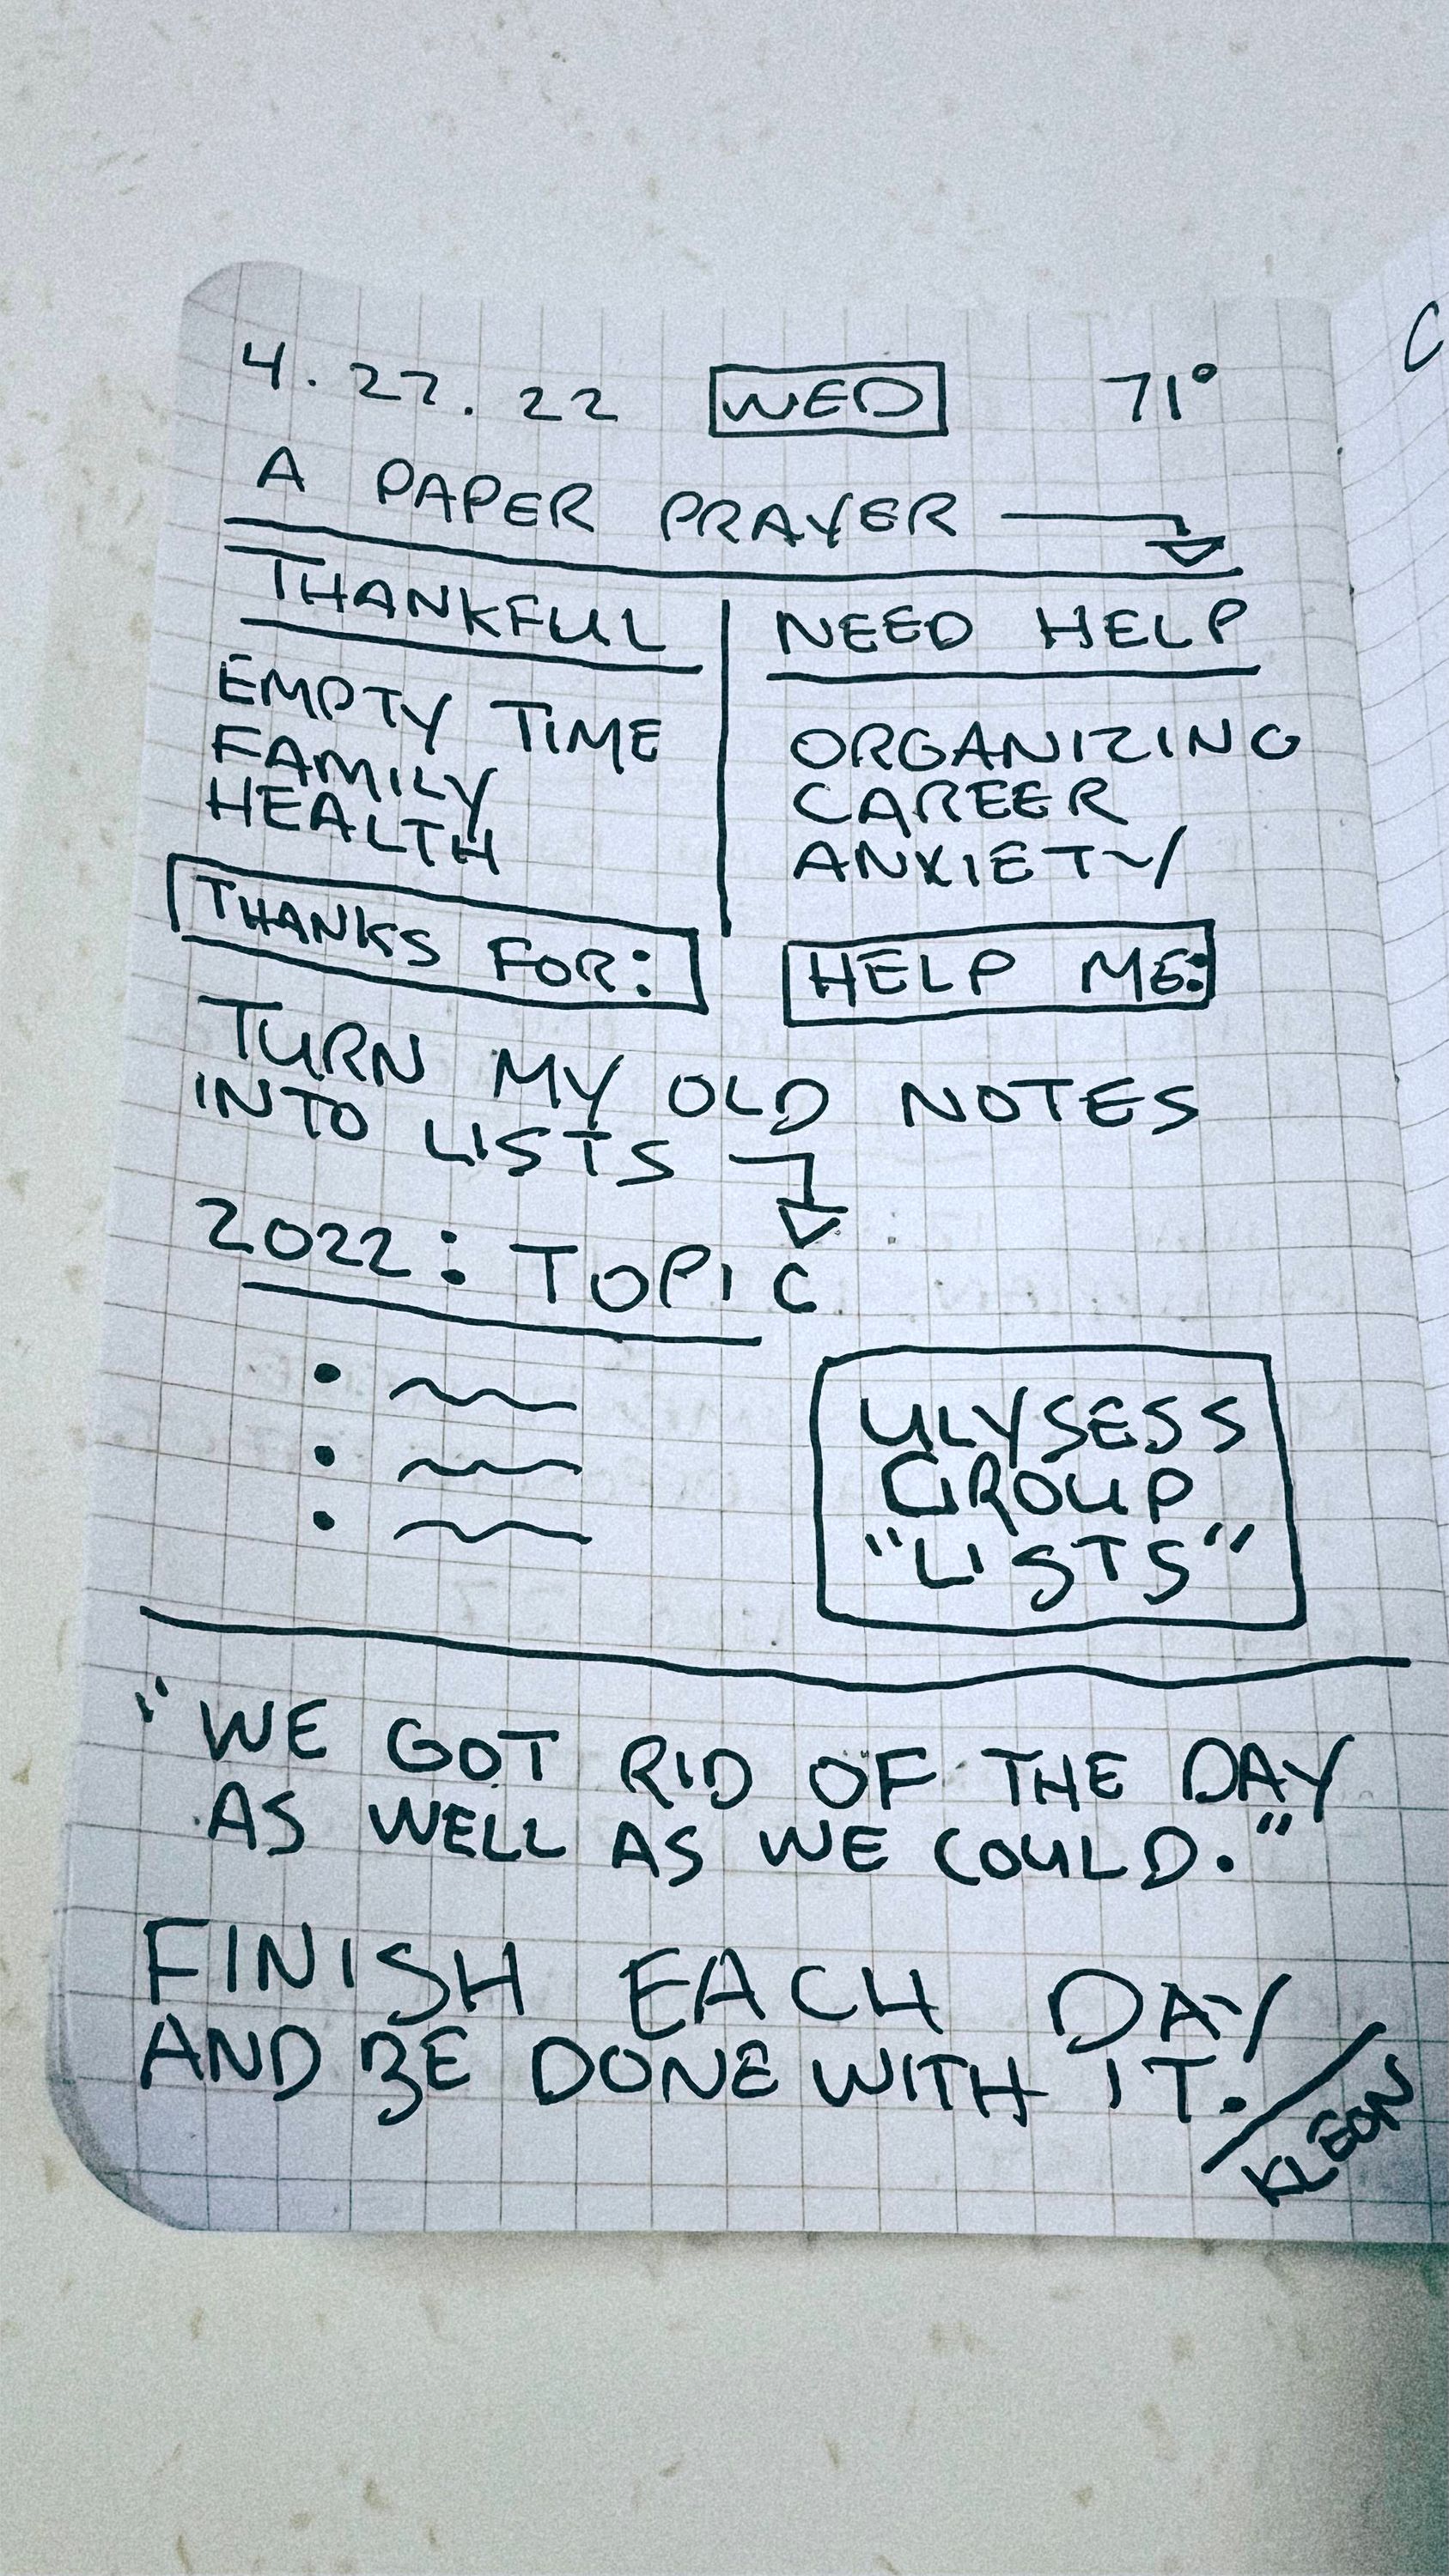 4.27.22 WED 71°
A PAPER PRAYER
THANKFUL
EMPTY TIME
FAMILY
HEALTH
THANKS FOR:
NEED HELP
ORGANIZING
CAREER
ANXIETY
HELP ME:
TURN MY OLD NOTES
INTO LISTS
2022: TOPIC
ULYSESS
GROUP
"LISTS"
"WE GOT RID OF THE DAY
AS WELL AS WE COULD."
FINISH EACH DAY
AND BE DONE WITH IT.
KLEON